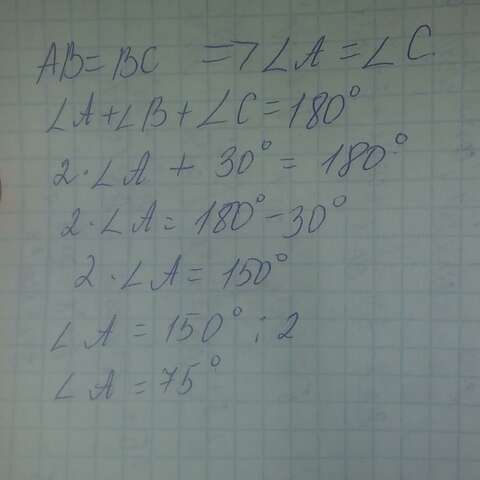 AB = BC => ∠A = ∠C
∠A + ∠B + ∠C = 180°
2 · ∠A + 30° = 180°
2 · ∠A = 180° - 30°
2 · ∠A = 150°
∠A = 150° : 2
∠A = 75°